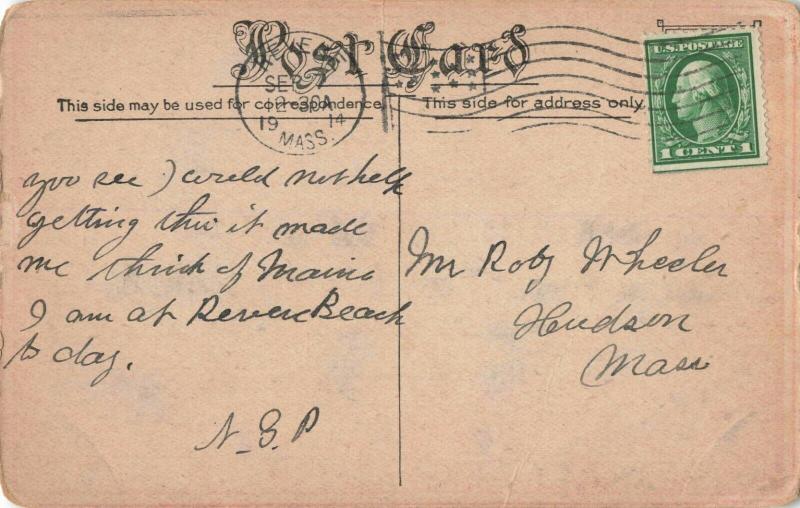 Post Card
SEP
2-30A
19 14
MASS.
U.S. POSTAGE
1 CENT 1
This side may be used for correspondence.
This side for address only.
you see I could not help
getting this it made
me think of Maine
I am at Revere Beach
to day.
N. G. P
Mr Roby Wheeler
Hudson
Mass